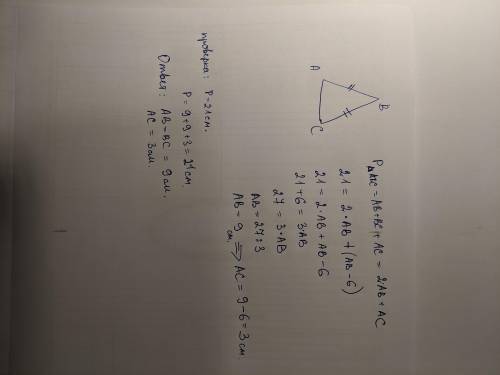 A
B
C
P△ABC = AB+BC+AC = 2AB + AC
21 = 2·AB + (AB-6)
21 = 2·AB + AB - 6
21+6 = 3·AB
27 = 3·AB
AB = 27:3
AB = 9 см ⇒ AC = 9-6 = 3 см.
проверка: P=21см.
P = 9+9+3 = 21 см
Ответ: AB=BC = 9 см.
AC = 3 см.